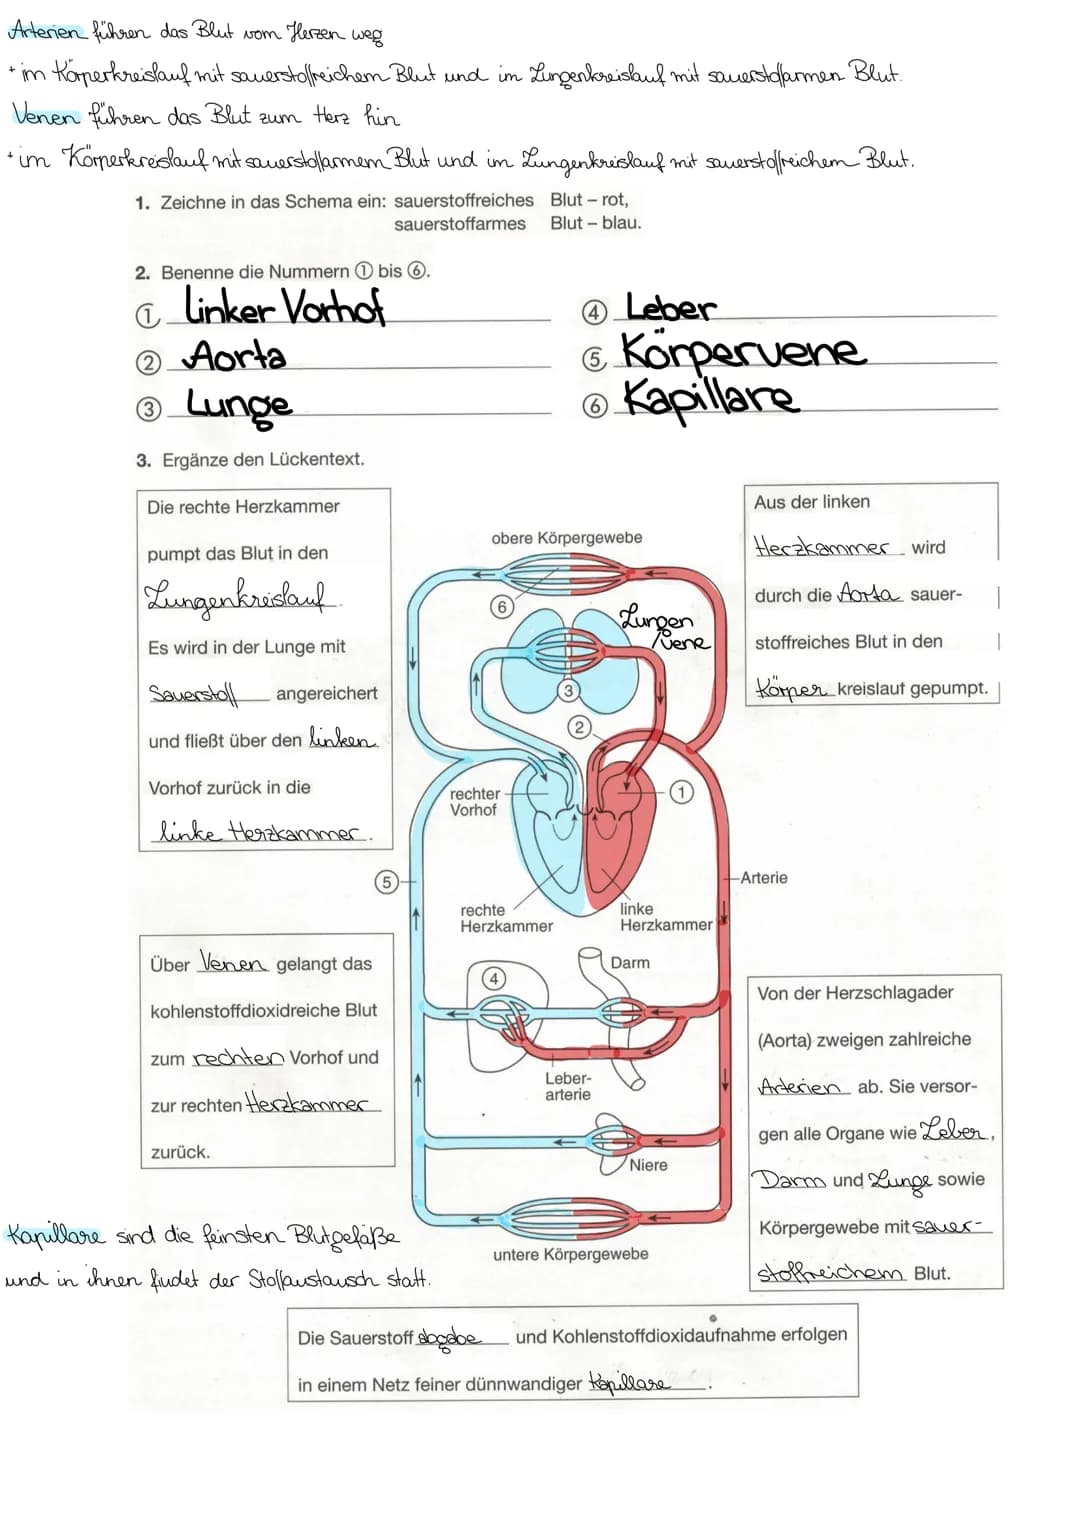 Arterien führen das Blut vom Herzen weg
+ im Körperkreislauf mit sauerstoffreichem Blut und im Lungenkreislauf mit sauerstoffarmen Blut.
Venen führen das Blut zum Herz hin
+ im Körperkreislauf mit sauerstoffarmem Blut und im Lungenkreislauf mit sauerstoffreichem Blut.
1. Zeichne in das Schema ein: sauerstoffreiches Blut – rot,
sauerstoffarmes Blut – blau.
2. Benenne die Nummern ① bis ⑥.
① linker Vorhof
② Aorta
③ Lunge
④ Leber
⑤ Körpervene
⑥ Kapillare
3. Ergänze den Lückentext.
Die rechte Herzkammer
pumpt das Blut in den
Lungenkreislauf.
Es wird in der Lunge mit
Sauerstoff angereichert
und fließt über den linken
Vorhof zurück in die
linke Herzkammer.
obere Körpergewebe
⑥
Lungen
vene
③
②
①
rechter
Vorhof
⑤
Arterie
rechte
Herzkammer
linke
Herzkammer
④
Darm
Leber-
arterie
Niere
untere Körpergewebe
Aus der linken
Herzkammer wird
durch die Aorta sauer-
stoffreiches Blut in den
Körper kreislauf gepumpt.
Über Venen gelangt das
kohlenstoffdioxidreiche Blut
zum rechten Vorhof und
zur rechten Herzkammer
zurück.
Von der Herzschlagader
(Aorta) zweigen zahlreiche
Arterien ab. Sie versor-
gen alle Organe wie Leber,
Darm und Lunge sowie
Körpergewebe mit sauer-
stoffreichem Blut.
Kapillare sind die feinsten Blutgefäße
und in ihnen findet der Stoffaustausch statt.
Die Sauerstoff abgabe und Kohlenstoffdioxidaufnahme erfolgen
in einem Netz feiner dünnwandiger Kapillare.